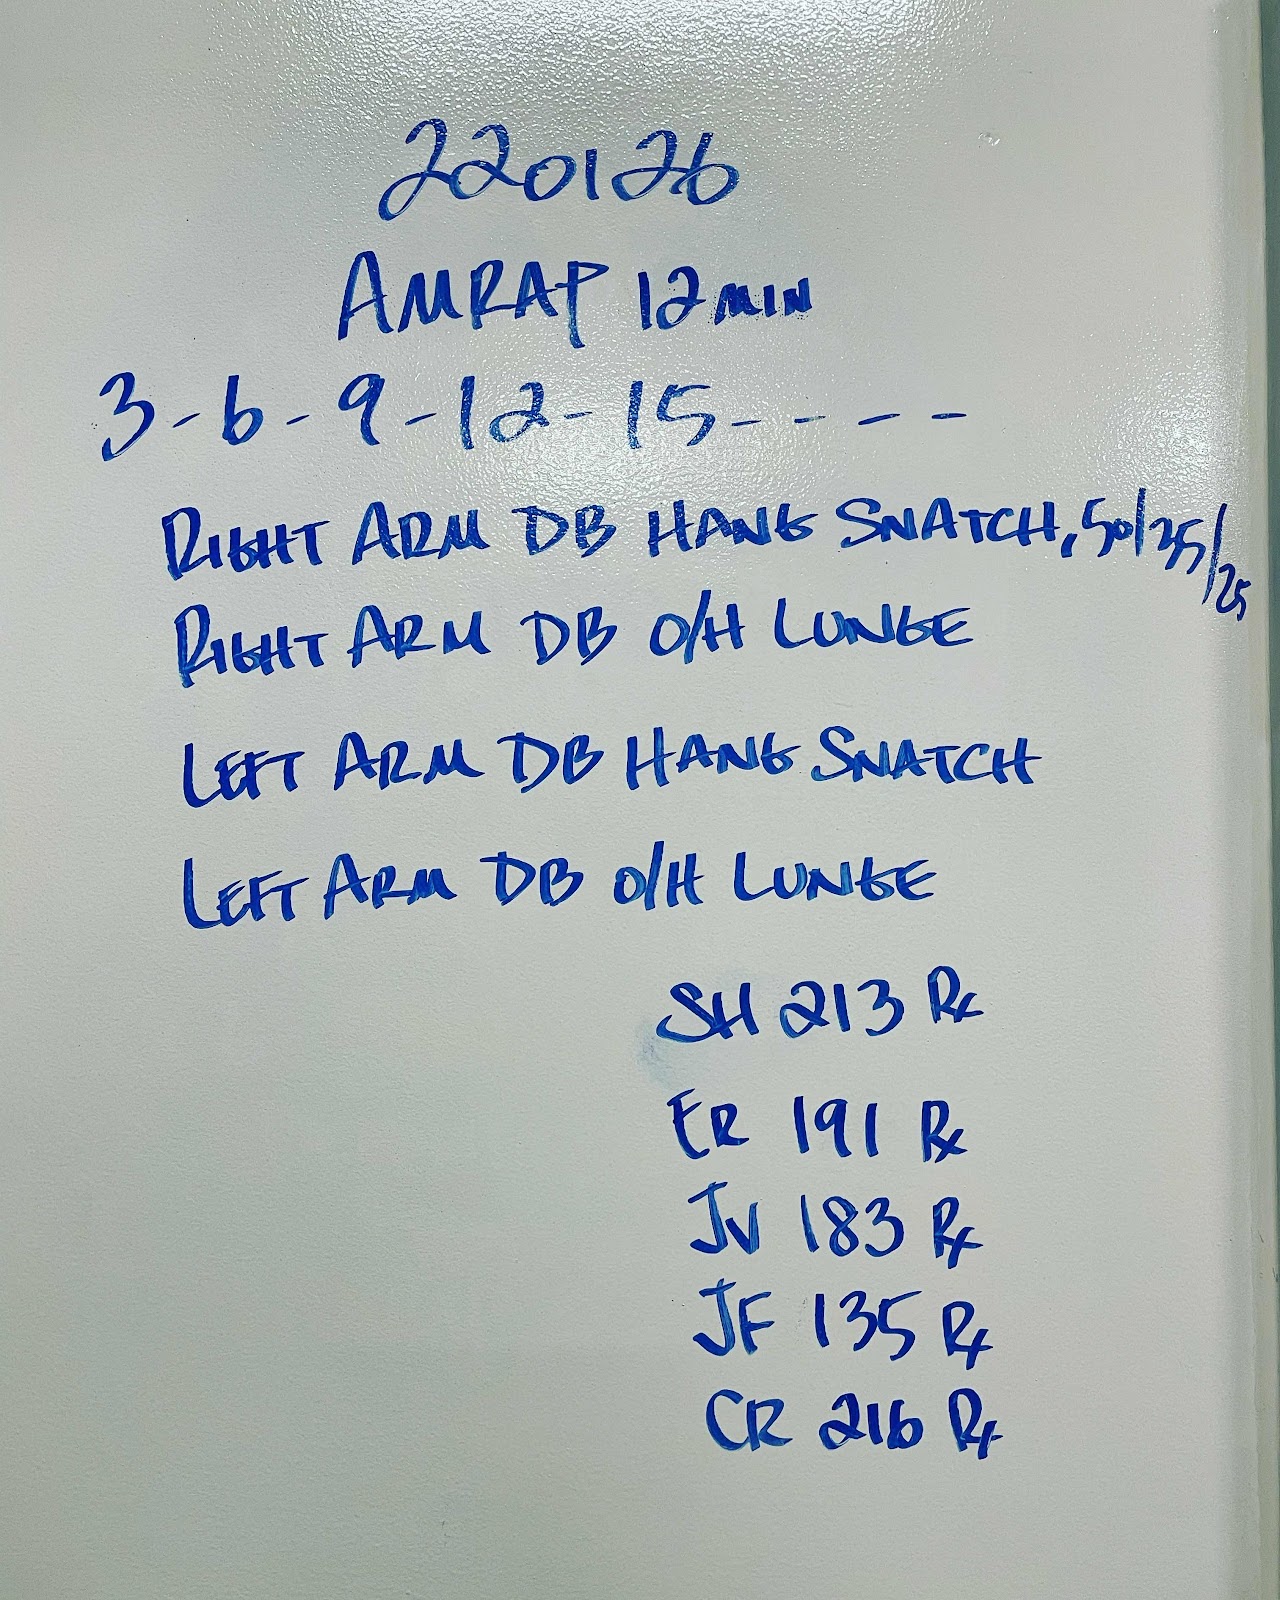 220126
AMRAP 12 MIN
3-6-9-12-15----
RIGHT ARM DB HANG SNATCH, 50/35/25
RIGHT ARM DB O/H LUNGE
LEFT ARM DB HANG SNATCH
LEFT ARM DB O/H LUNGE
SH 213 Rx
ER 191 Rx
JV 183 Rx
JF 135 Rx
CR 216 Rx